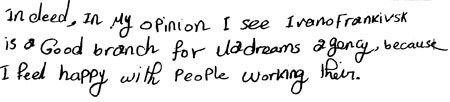 Indeed, In My opinion I see IvanoFrankivsk
is a Good branch for Uadreams agency, because
I feel happy with People working their.